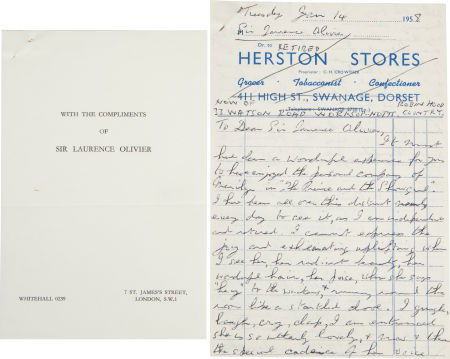 WITH THE COMPLIMENTS
OF
SIR LAURENCE OLIVIER
WHITEHALL 0239
7 ST. JAMES'S STREET,
LONDON, S.W.1
Tuesday Jan 14 1958
Sir Laurence Olivier
Dr. to RETIRED
HERSTON STORES
Proprietor: C. H. CROWTHER
Grocer Tobacconist Confectioner
411 HIGH ST., SWANAGE, DORSET
Telephone: SWANAGE
NOW OF ROBIN HOOD
WATSON ROAD WORKSOP NOTTS COUNTRY
To Dear Sir Laurence Olivier,
It must
have been a wonderful experience for you
to have enjoyed the personal company of
Marilyn in "The Prince and the Showgirl"
I have been all over this district nearly
every day to see it, as I am independent
and retired. I cannot express the
joy and exhilarating uplifting when
I see her, her radiant beauty, her
wonderful hair, her poise, when she says
"hey" to the waiters, & running round the
room like a startled dove. I giggle,
laugh, cry, clap, I am entranced
she is so utterly lovely, & now & then
the special cadence of her voice